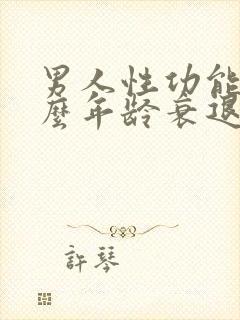 男人性功能
麼年齡衰退
許琴